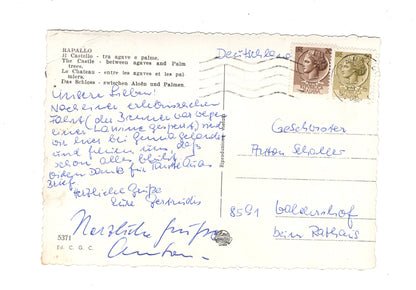 RAPALLO
Il Castello - tra agave e palme.
The Castle - between agaves and Palm
trees.
Le Chateau - entre les agaves et les pal
miers.
Das Schloss - zwischen Aloën und Palmen.
Deutschland
Unsere Lieben!
Nach einer erlebnisreichen
Fahrt (der Brenner war wegen
einer Lawine gesperrt) sind
wir hier bei Genua gelandet
und freuen uns, daß
schon alles blüht.
Vielen Dank für
Brief
Herzliche Grüße
Eure Gertrudis
Herzliche Grüße
Anton
Geschwister
Anton Schaller
8591 Waldershof
beim Rathaus
5371
Ed. C. G. C.